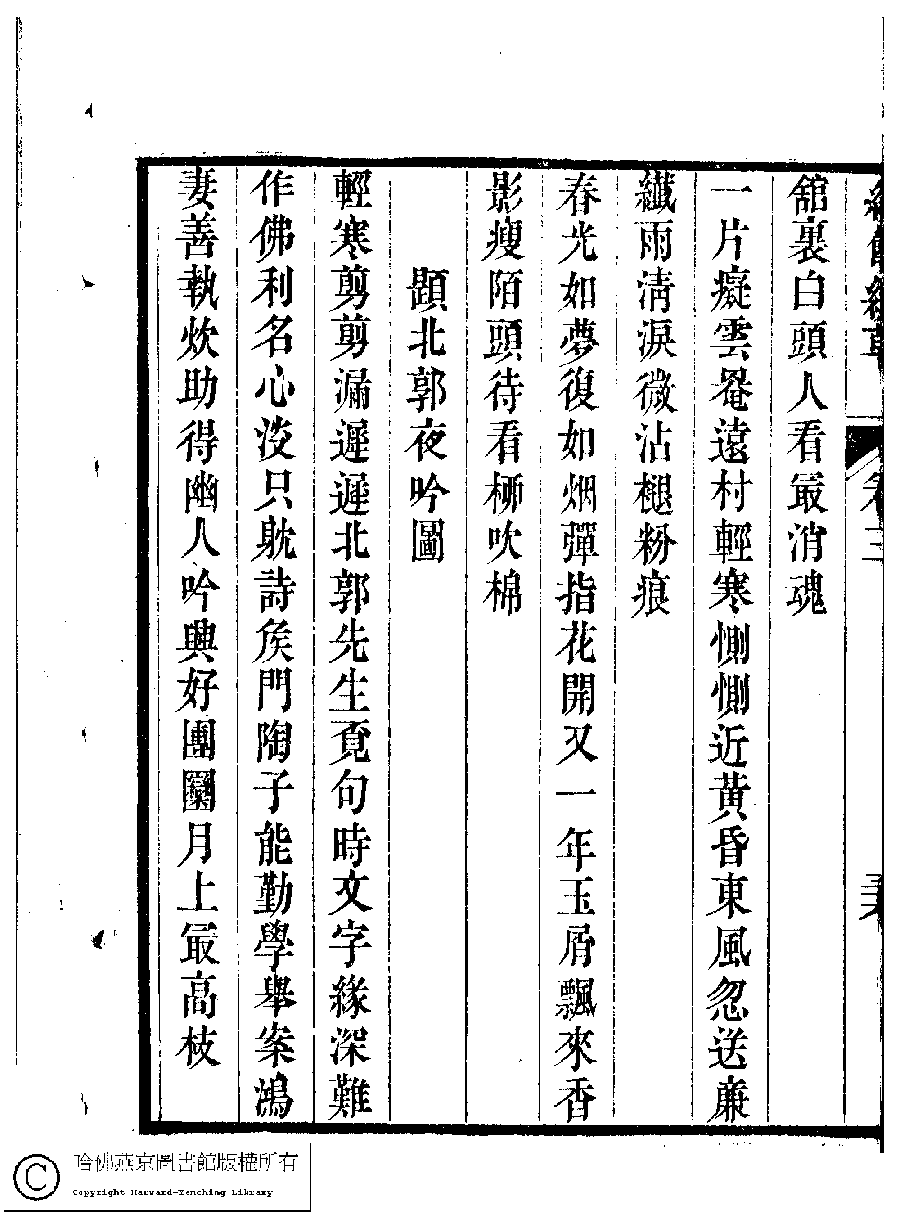 舘裏白頭人看㝡消魂
一片癡雲罨遠村輕寒惻惻近黃昏東風忽送廉
纖雨淸淚微沾褪粉痕
春光如夢復如烟彈指花開又一年玉屑飄來香
影瘦陌頭待看柳吹棉
題北郭夜吟圖
輕寒剪剪漏遲遲北郭先生覔句時文字緣深難
作佛利名心淡只躭詩矦門陶子能勤學舉案鴻
妻善執炊助得幽人吟興好團圞月上㝡高枝
哈佛燕京圖書館版權所有
Copyright Harvard-Yenching Library